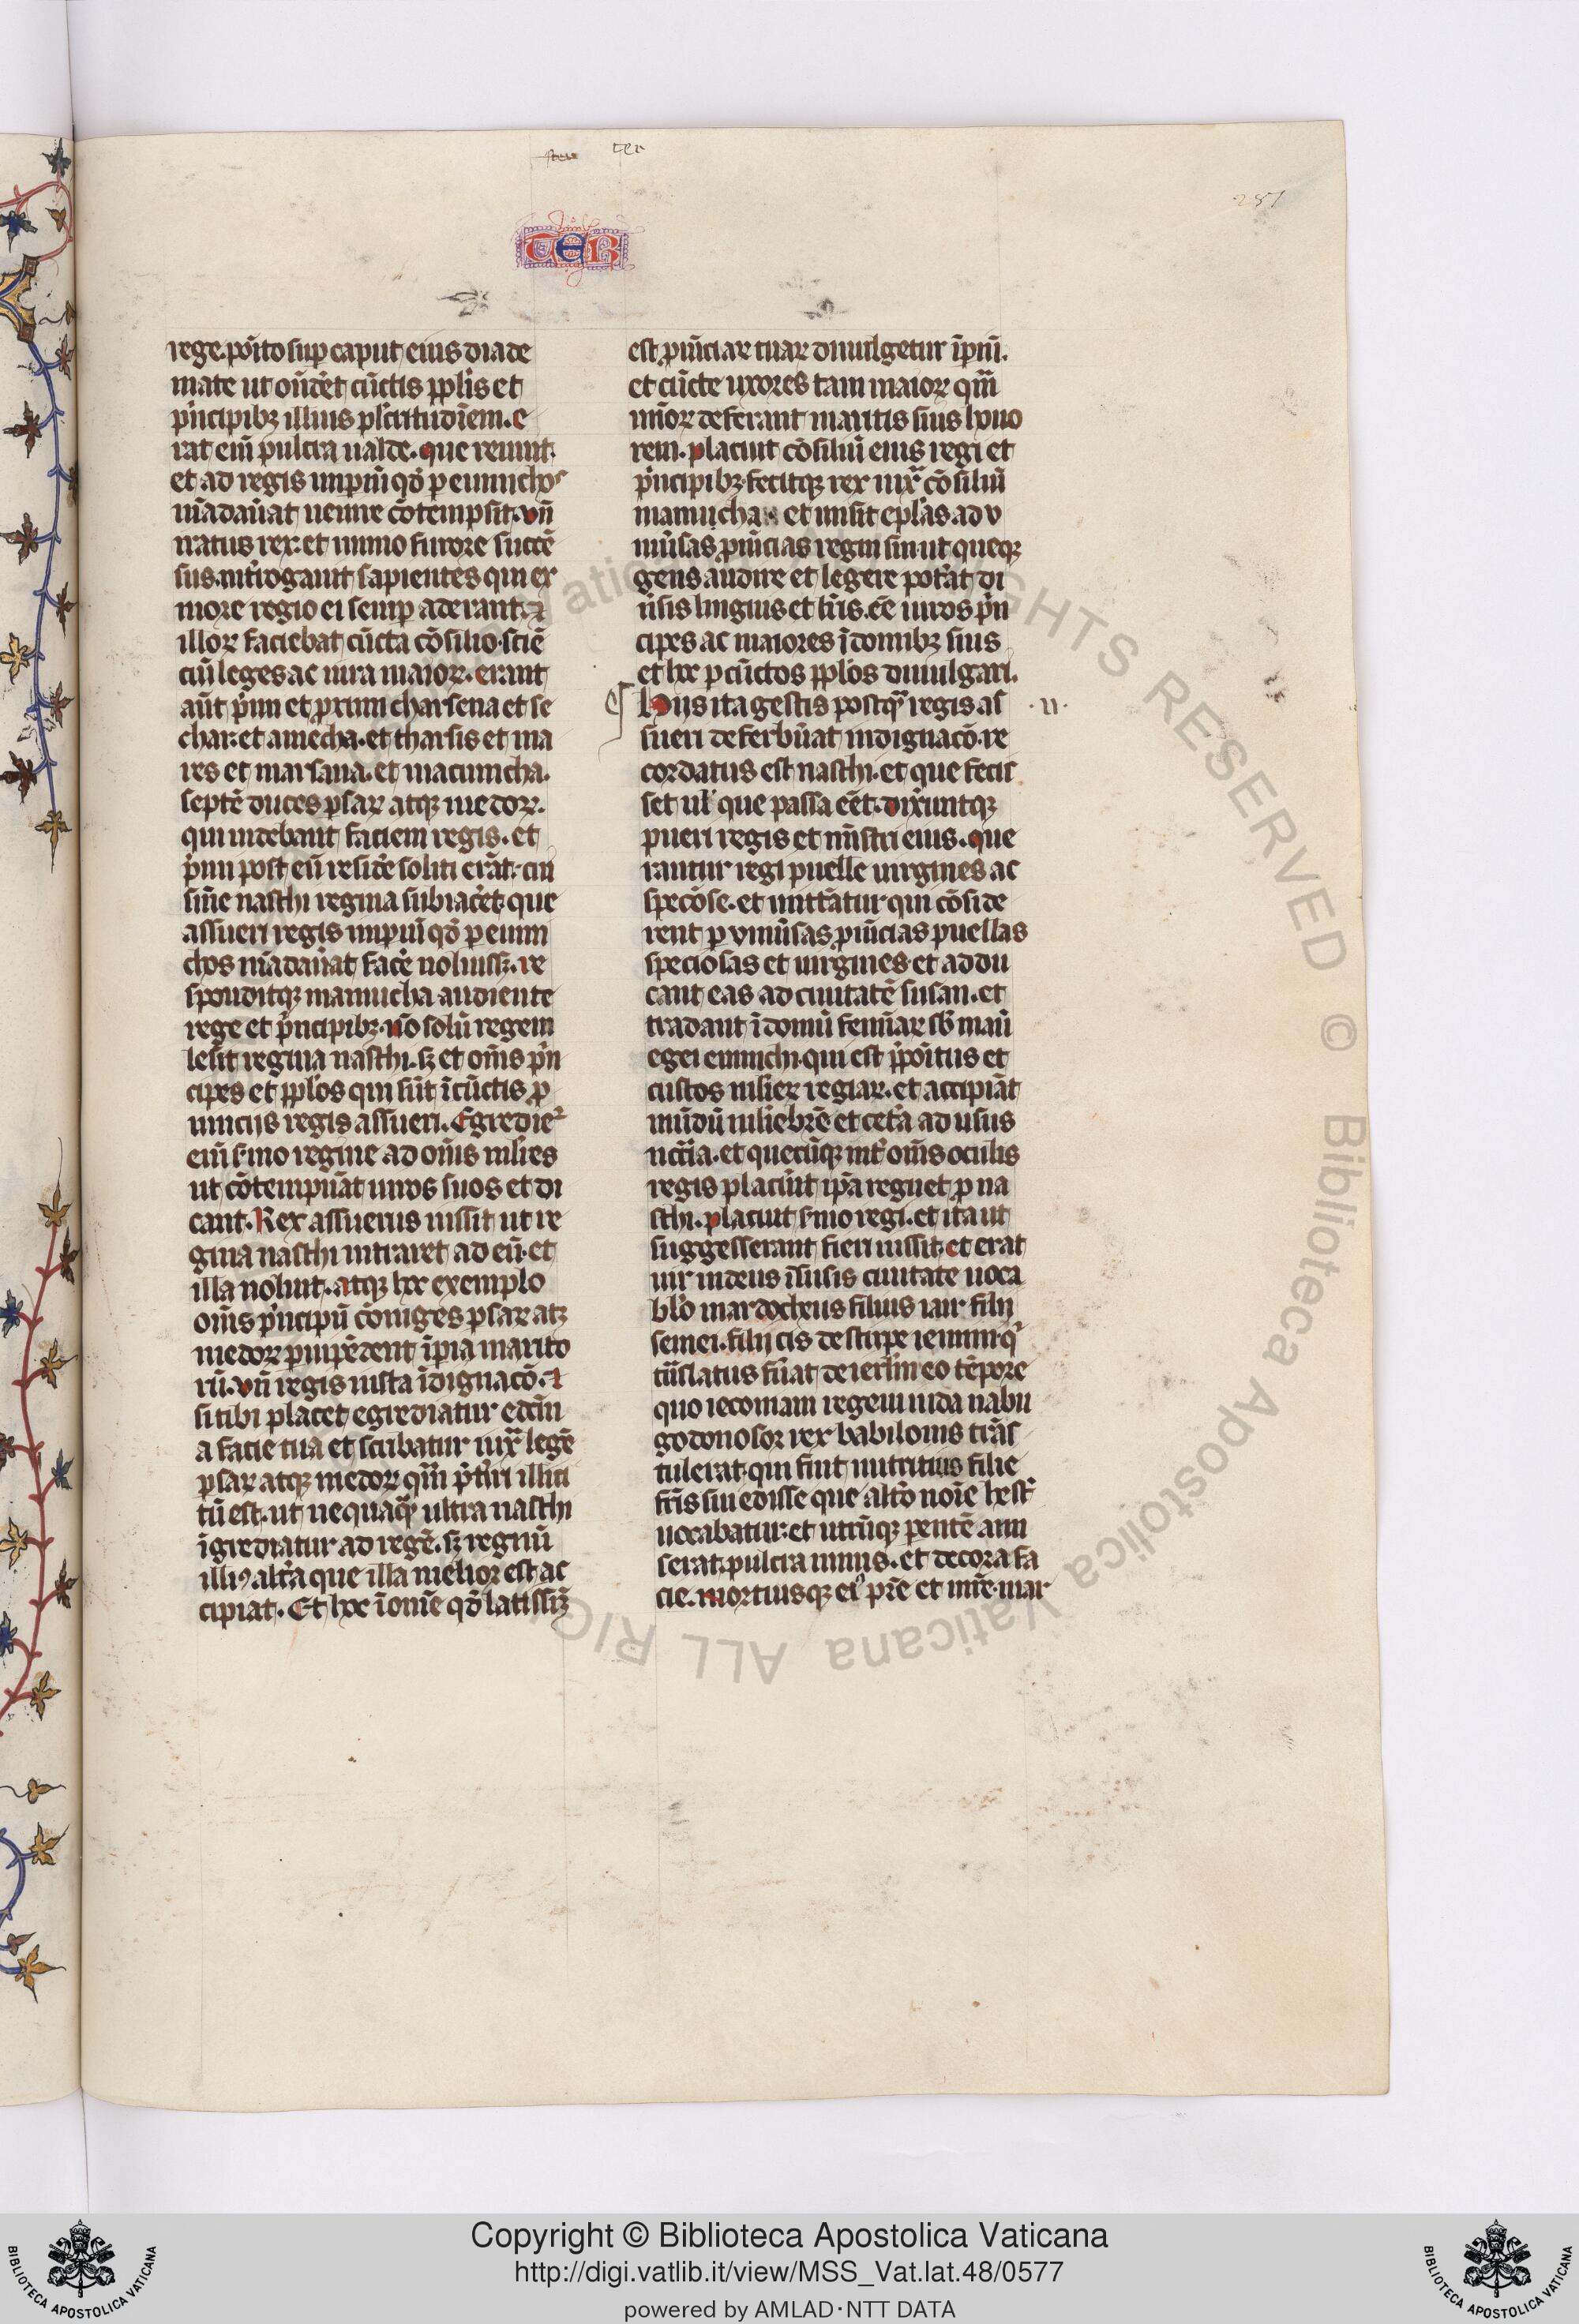 ter
257
TER
rege. po᷑ito sup caput eius diade
mate ut on̄d̄et cūctis pplīs et
p̄ncipibꝫ illius plc̄ritudīem. e
rat eni pulcra ualde. que renuit.
et ad regis impiū qd̄ p eunuchos
mādau̅at uenire cōtempsit. vn̄
iratus rex. et nimio furore succē
sus. intrōgauit sapientes qui ex
more regio ei semp aderant. ⁊
illoꝝ faciebat cūcta cōsilio. sciē
ciū leges ac iura maioꝝ. erant
aūt p̄mi et proximi charsena et se
char. et amecha. et tharsis et ma
res et marsana. et macumcha.
septē duces psaꝝ atqꝫ medoꝝ.
qui uidebant faciem regis. et
p̄mi post eū residē soliti erāt. cui
sn̄ie uasthi regina subiacēt. que
assueri regis impiū qd̄ p eunu
chos mādauāt facē noluissꝫ. re
sponditqꝫ mamucha audiente
rege et p̄ncipibꝫ. nō solū regem
lesit regina uasthi. sꝫ et om̄is p̄n
cipes et pplōs qui sūt ī cūctis ꝓ
uincijs regis assueri. Egredie
enī sīmo regine ad om̄is mlīes
ut cōtempnāt uiros suos et di
cant. Rex assuerus iussit ut re
gina uasthi intraret ad eū. et
illa noluit. atqꝫ hoc exemplo
om̄is p̄ncipū cōniuges psaꝝ atqꝫ
medoꝝ puipēdent īpia marito
rū. vn̄ regis iusta īdignacō. ⁊
si tibi placet egrediatur edcm̄
a facie tua et scribatur iuxͣ legē
psaꝝ atqꝫ medoꝝ qm̄ p̄tiri illici
tū est. ut nequaqͣ ultra uasthi
īgrediatur ad regē. sꝫ regnū
illiꝰ altā que illa melior est ac
cipiat. Et hoc ī om̄e qd̄ latissīꝫ
est ꝓuīciaꝝ tuaꝝ diuulgetur īpiū.
et cūcte uxores tam maioꝝ qm̄
minoꝝ deferant maritis suis hono
rem. placuit cōsiliū eius regi et
p̄ncipibꝫ. fecitqꝫ rex iuxͣ cōsiliū
mamucha et misit eplās ad v
niūsas ꝓuīcias regni sui. ut queqꝫ
gens audire et legere potāt di
ūsis linguis et lrīs. eē uiros p̄n
cipes ac maiores ī domibꝫ suis
et hoc p cūctos pplōs diuulgari.
Hijs ita gestis postqͣ regis as
.ii.
sueri deferbuāt indignacō. re
cordatus est uasthi. et que fecis
set ul que passa eēt. dixūntqꝫ
pueri regis et mīstri eius. que
rantur regi puelle uirgines ac
speciōse. et mittātur qui cōside
rent p vniūsas ꝓuīcias puellas
speciosas et uirgines. et addu
cant eas ad ciuitatē susan. et
tradant ī domū feminaꝝ sb manū
egei eunuchi. qui est p̄po᷑itus et
custos mlīeꝝ regiaꝝ. et accipiāt
mūdū mliebrē et cetā ad usus
nccīia. et quecūqꝫ int om̄is oculis
regis placuit ipā regnet ꝓ ua
sthi. placuit sīmo regi. et ita ut
suggesserant fieri iussit. et erat
uir iudeus ī susis ciuitate uoca
blō mardocheus filius iair filij
semei. filij cis de stirpe iemini. q̄
tn̄slatus fuāt de ierlm̄ eo tēpore
quo ieconiam regem iuda nabu
godonosor rex babilonis trās
tulerat. qui fuit nutritius filie
frīs sui edisse que altō noīe hestͬ
uocabatur. et utrūqꝫ pentē ami
serat. pulcra nimis. et decora fa
cie. mortuisqꝫ eiꝰ prē et mrē. mar
Copyright © Biblioteca Apostolica Vaticana
http://digi.vatlib.it/view/MSS_Vat.lat.48/0577
powered by AMLAD·NTT DATA